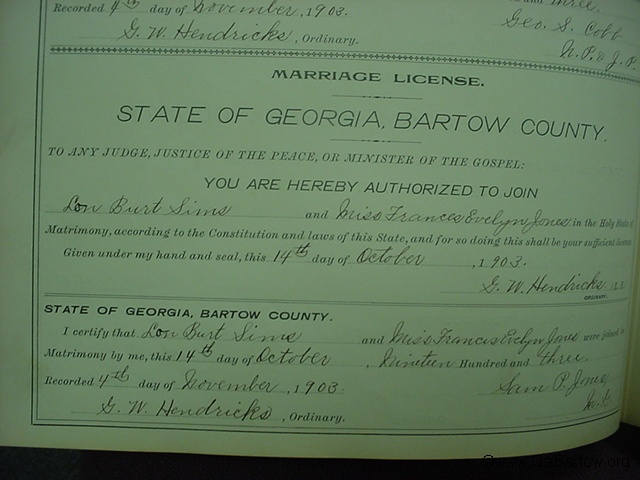 Recorded 4th day of November, 1903. and three.
G. W. Hendricks, Ordinary. Geo. S. Cobb
N. P. & J. P.
MARRIAGE LICENSE.
STATE OF GEORGIA, BARTOW COUNTY.
TO ANY JUDGE, JUSTICE OF THE PEACE, OR MINISTER OF THE GOSPEL:
YOU ARE HEREBY AUTHORIZED TO JOIN
Lon Burt Sims and Miss Frances Evelyn Jones in the Holy State of
Matrimony, according to the Constitution and laws of this State, and for so doing this shall be your sufficient license.
Given under my hand and seal, this 14th day of October, 1903.
G. W. Hendricks
ORDINARY.
STATE OF GEORGIA, BARTOW COUNTY.
I certify that Lon Burt Sims and Miss Frances Evelyn Jones were joined in
Matrimony by me, this 14th day of October, Nineteen Hundred and three.
Recorded 4th day of November, 1903. Sam P. Jones,
G. W. Hendricks, Ordinary.